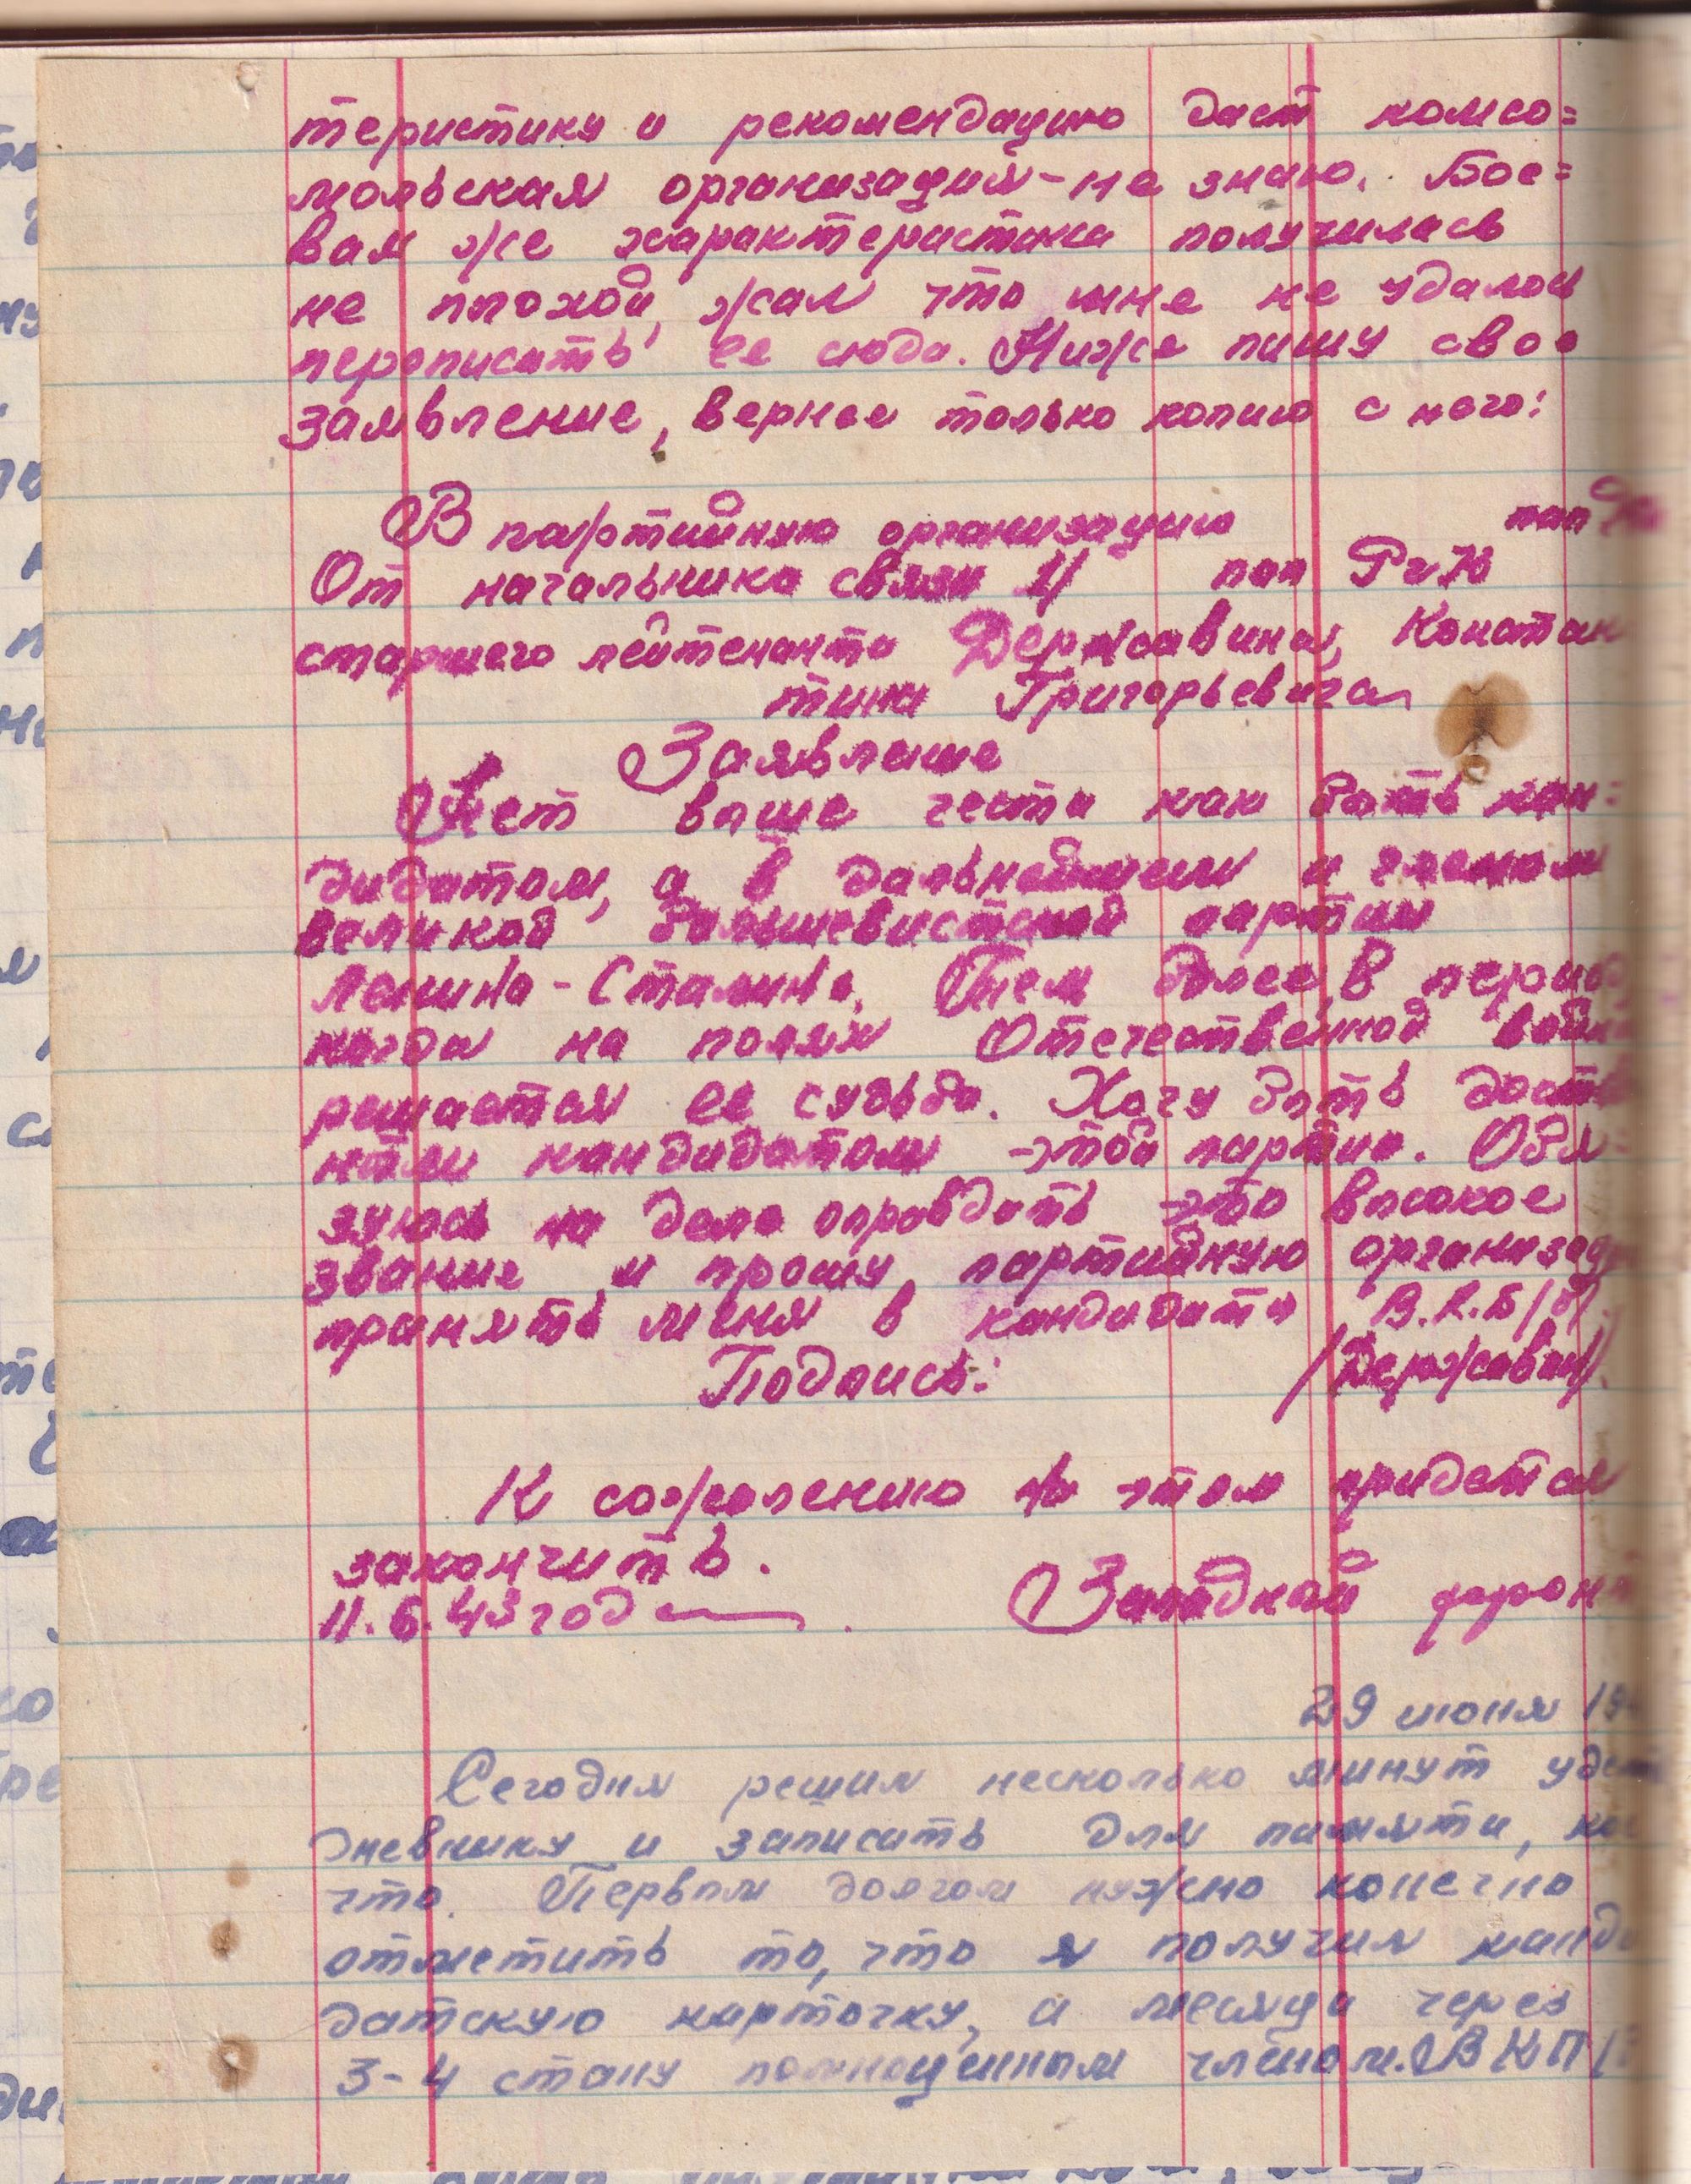 теристику и рекомендацию даст комсо=
мольская организация - не знаю. Бое=
вая же характеристика получилась
не плохой, жал что мне не удалось
переписать ее сюда. Ниже пишу свое
заявление, вернее только копию с него:
В партийную организацию
От начальника связи поп РГК
старшего лейтенанта Державина, Констан
тина Григорьевича
Заявление
Нет выше чести как быть кан=
дидатом, а в дальнейшем и членом
великой большевистской партии
Ленина - Сталина. Тем более, в период
когда на полях Отечественной войны
решается ее судьба. Хочу быть
кандидатом этой партии. Обя-
зуюсь на деле оправдать это высокое
звание и прошу партийную организац
принять меня в кандидаты В.К.П/б/.
Подпись: /Державин/.
К сожалению на этом придется
закончить.
11.6.43 год Западной фрон
29 июня 19
Сегодня решил несколько минут уде
дневнику и записать для памяти, кое
что. Первым долгом нужно конечно
отметить то, что я получил канди
датскую карточку, а месяца через
3-4 стану полноценным членом ВКП/